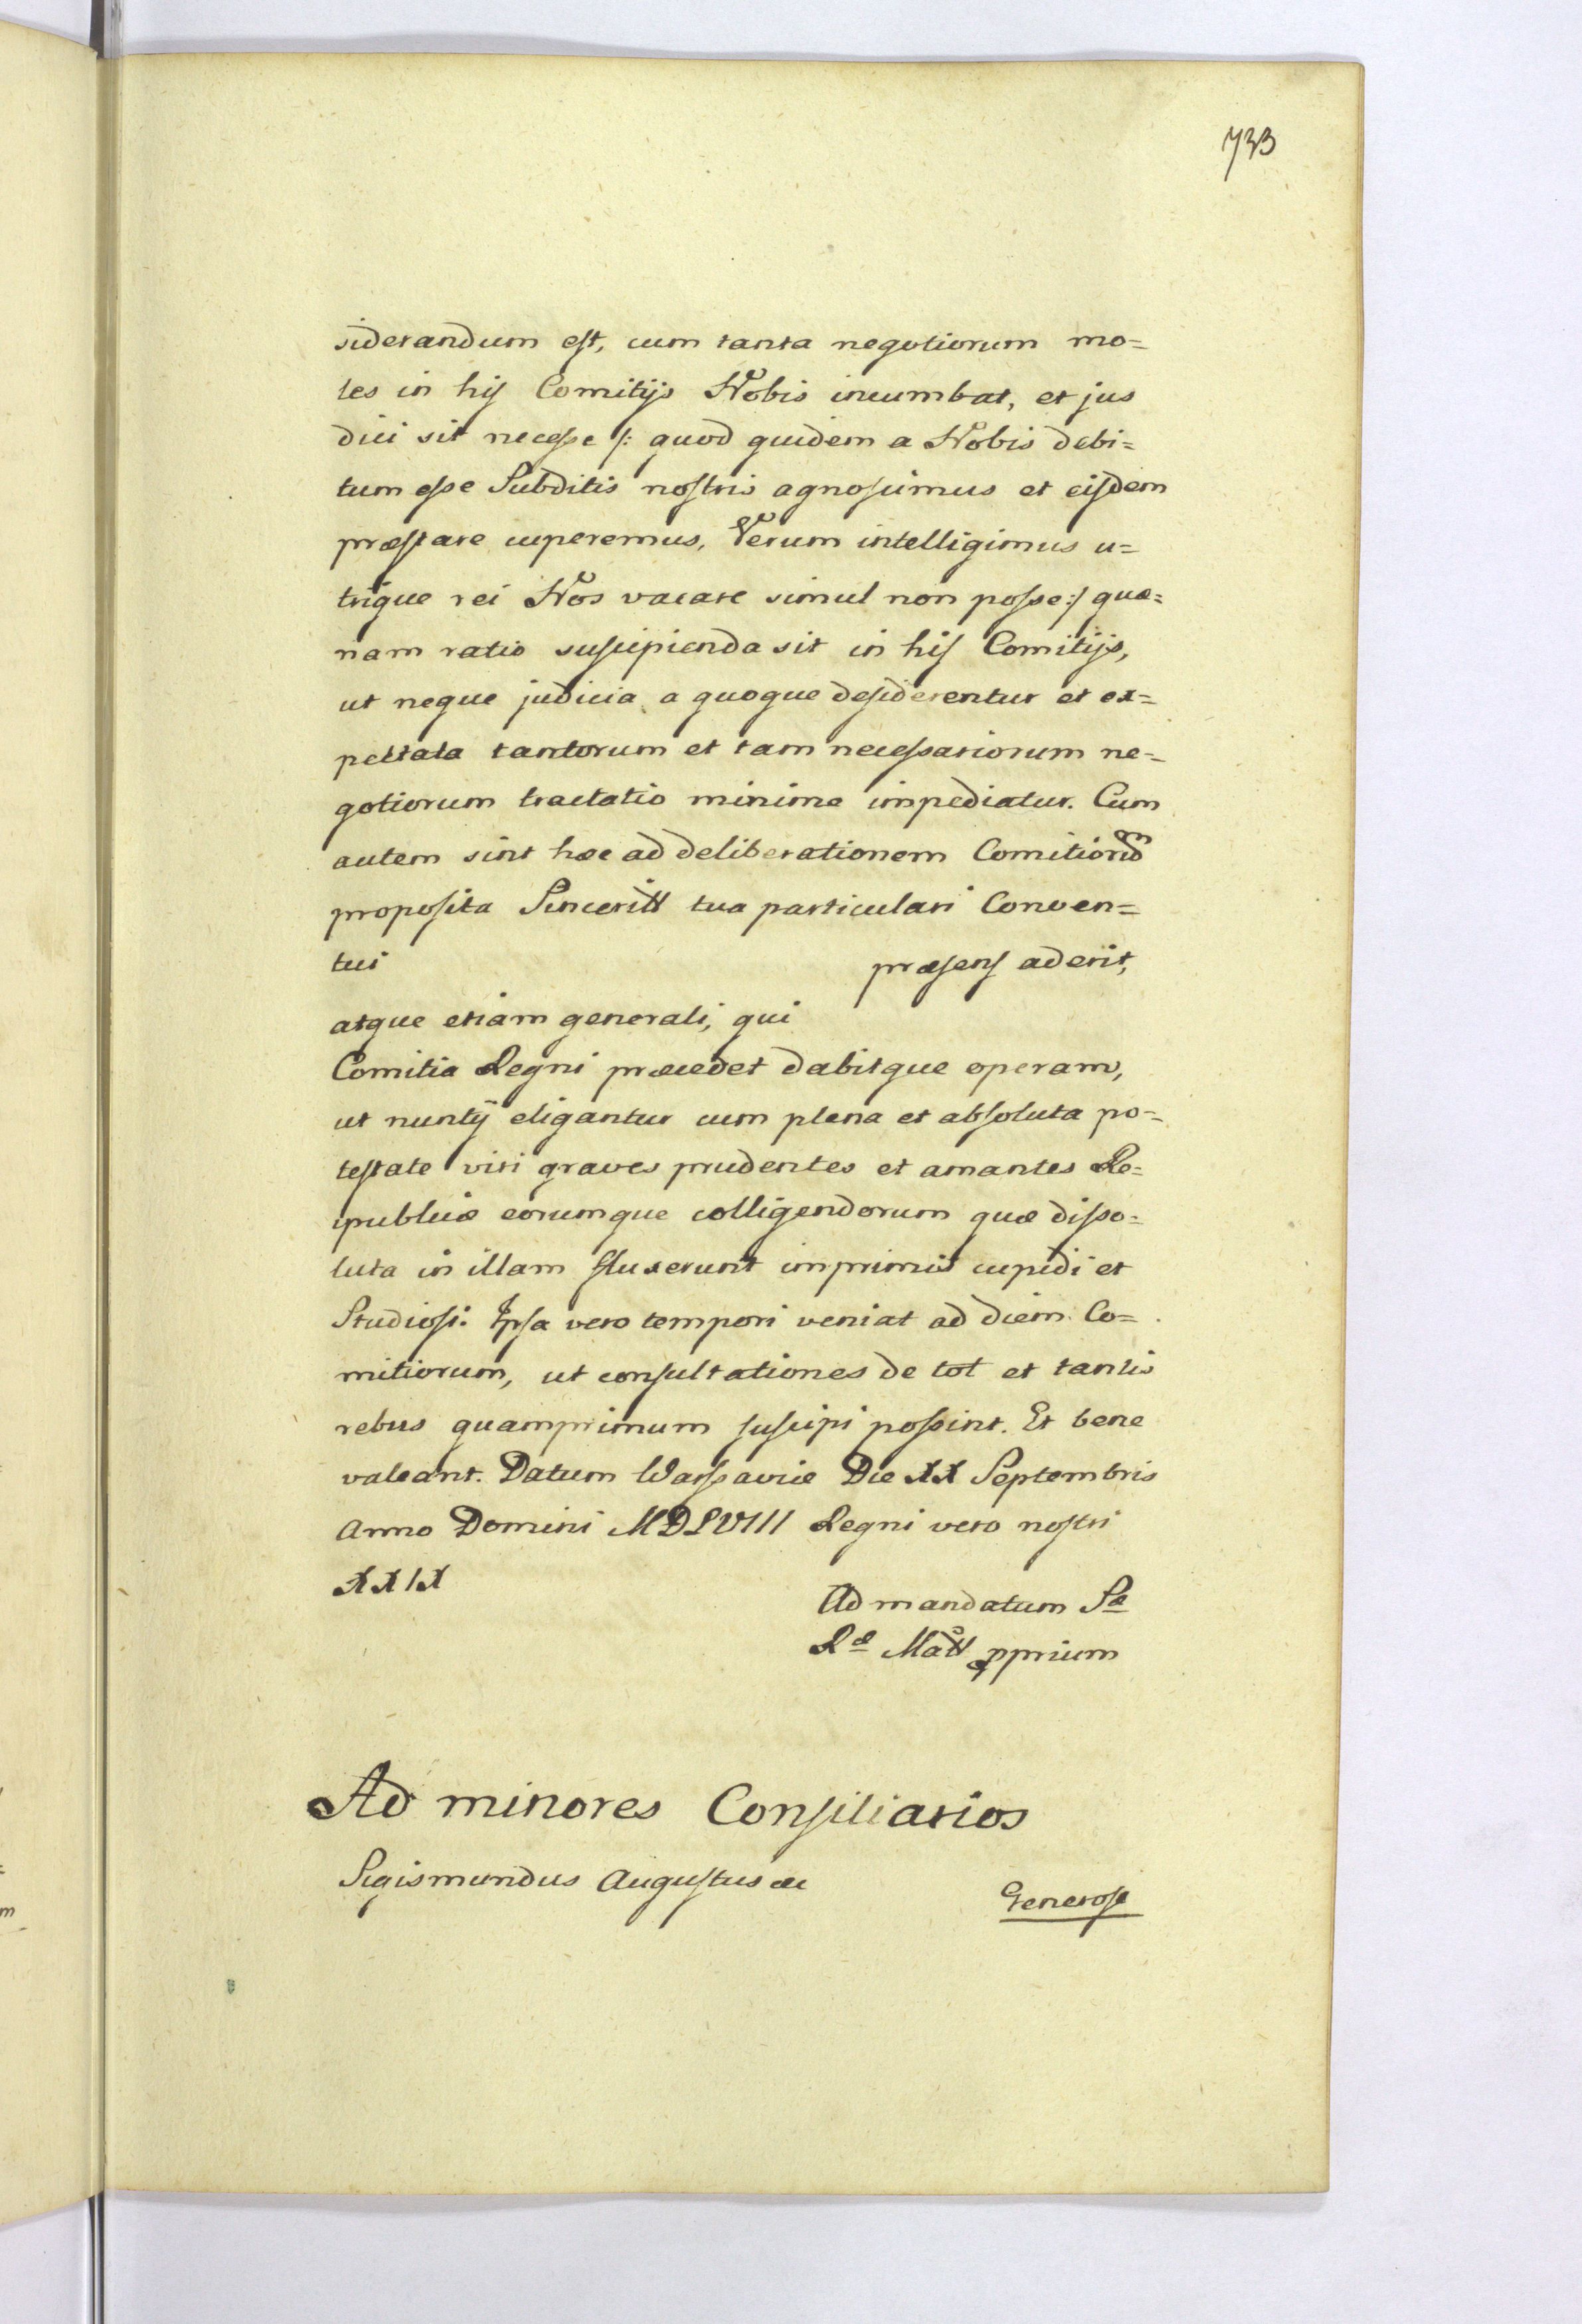 733
siderandum est, cum tanta negotiorum mo=
les in his Comitijs Nobis incumbat, et jus
dici sit necesse /: quod quidem a Nobis debi=
tum esse Subditis nostris agnoscimus et eisdem
præstare cuperemus, Verum intelligimus u=
trique rei Nos vacare simul non posse :/ quæ=
nam ratio suscipienda sit in his Comitijs,
ut neque judicia a quoque desiderentur et ex=
pectata tantorum et tam necessariorum ne=
gotiorum tractatio minime impediatur. Cum
autem sint hæc ad deliberationem Comitiorum
proposita Sinceritt tua particulari Conven=
tui præsens aderit,
atque etiam generali, qui
Comitia Regni præcedet dabitque operam,
ut nuntij eligantur cum plena et absoluta po=
testate viri graves prudentes et amantes Re=
ipublicæ eorumque colligendorum quæ disso=
luta in illam fluxerunt imprimis cupidi et
Studiosi. Ipsa vero tempori veniat ad diem Co=
mitiorum, ut consultationes de tot et tantis
rebus quamprimum suscipi possint. Et bene
valeant. Datum Warssaviæ Die XX Septembris
Anno Domini MDLVIII Regni vero nostri
XXIX
Ad mandatum Sæ
Ræ Mätt pprium
Ad minores Consiliarios
Sigismundus Augustus &c
Generose